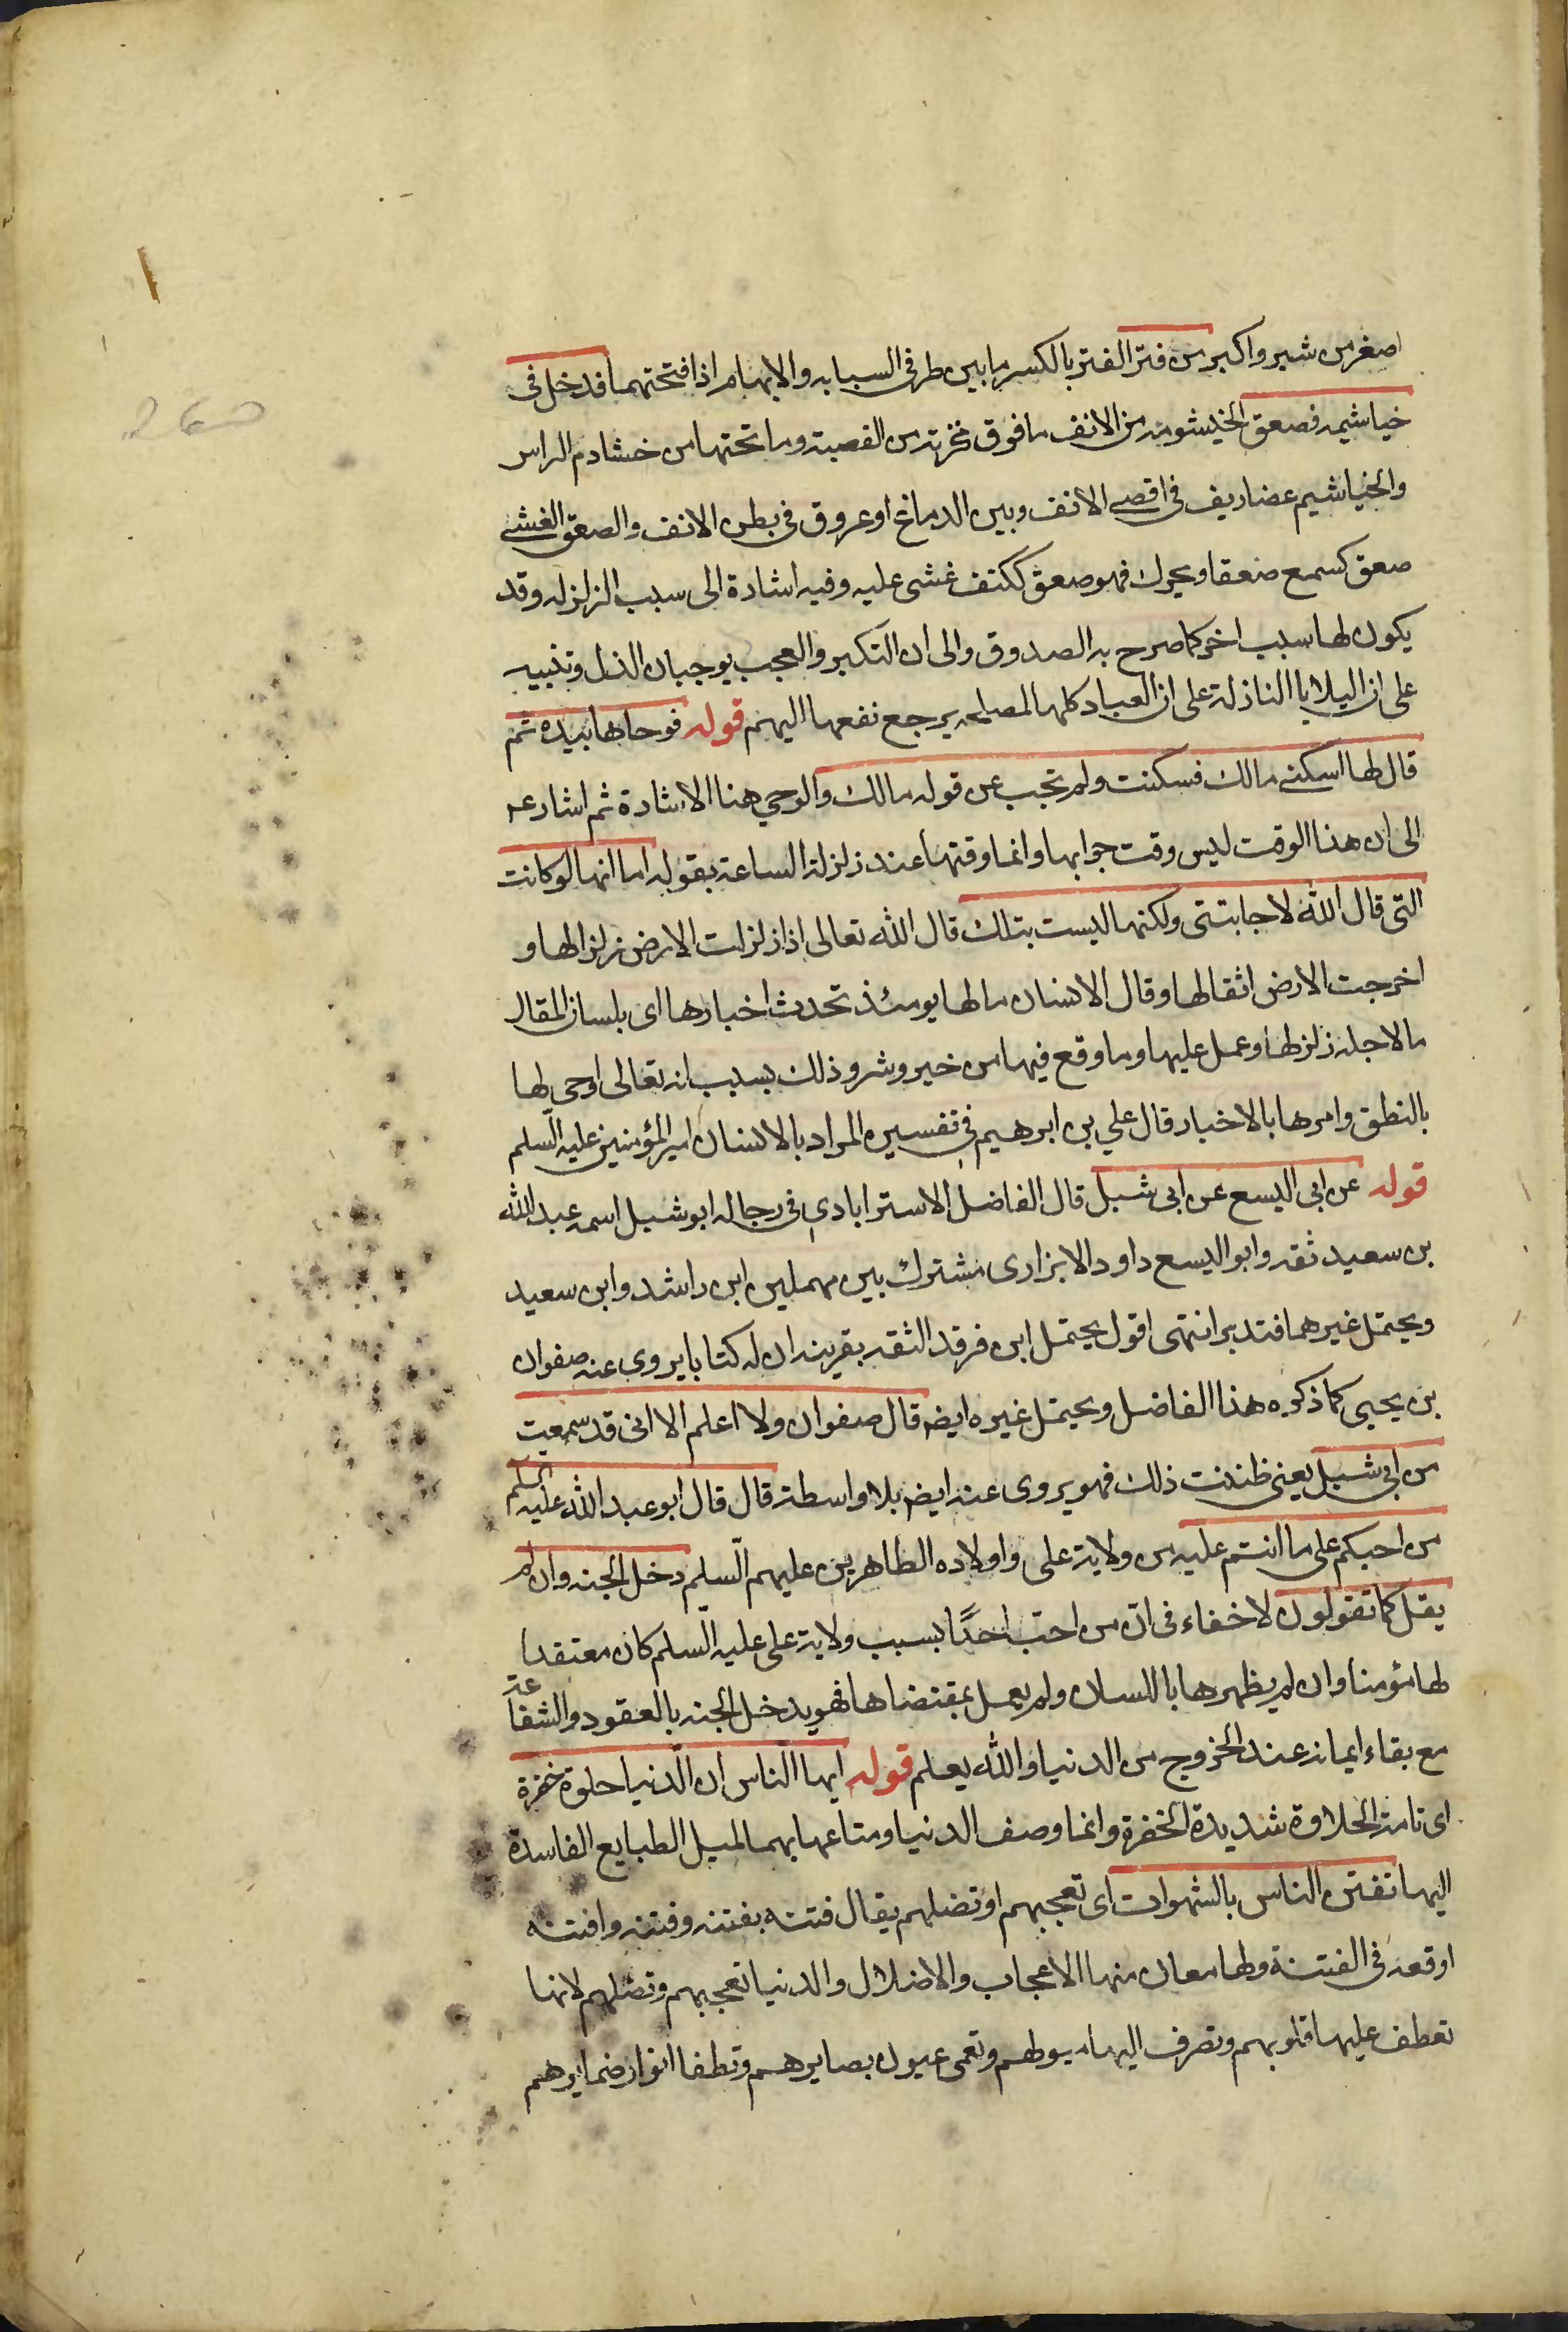 اصغر من شبر واكبر من فتر الفتر بالكسر ما بين طرفى السبابه والابهام اذا فتحتهما فدخل فى
خياشيمه فصعق الخيشوم من الانف ما فوق نخرته من القصبة وما تحتها من خشارم الراس
والخياشيم غضاريف فى اقصى الانف وبين الدماغ او عروق فى بطن الانف والصعق الغشى
صعق كسمع صعقا ويحرك فهو صعق ككتف غشى عليه وفيه اشارة الى سبب الزلزله وقد
يكون لها سبب اخر كما صرح به الصدوق والى ان التكبر والعجب يوجبان الذل وتنبيه
على ان البلايا النازلة على العباد كلها لمصلحه يرجع نفعها اليهم قوله فوحا لها بيده ثم
قال لها اسكنى مالك فسكنت ولم تجب عن قوله مالك والوحى هنا الاشارة ثم اشار ع
الى ان هذا الوقت ليس وقت جوابها وانما وقتها عند زلزلة الساعة بقوله اما انها لو كانت
التى قال الله لاجابتنى ولكنها ليست بتلك قال الله تعالى اذا زلزلت الارض زلزالها و
اخرجت الارض اثقالها وقال الانسان مالها يومئذ تحدث اخبارها اى بلسان المقال
ما لاجله زلزلها وعمل عليها وما وقع فيها من خير وشر وذلك بسبب انه تعالى اوحى لها
بالنطق وامرها بالاخبار قال علي بن ابرهيم فى تفسيره المراد بالانسان امير المؤمنين عليه السلم
قوله عن ابى اليسع عن ابى شبل قال الفاضل الاسترابادى فى رجاله ابو شبل اسمه عبد الله
بن سعيد ثقه وابو اليسع داود الابزارى مشترك بين مهملين ابن راشد وابن سعيد
ويحتمل غيرهما فتدبر انتهى اقول يحتمل ابن فرقد الثقه بقرينه ان له كتابا يروى عنه صفوان
بن يحيى كما ذكره هذا الفاضل ويحتمل غيره ايضه قال صفوان ولا اعلم الا انى قد سمعت
من ابى شبل يعنى ظننت ذلك فهو يروى عنه ايضه بلا واسطة قال قال ابو عبد الله عليه السلم
من احبكم على ما انتم عليه من ولاية على واولاده الطاهرين عليهم السلم دخل الجنه وان لم
يقل كما تقولون لا خفاء فى ان من احب احدًا بسبب ولاية على عليه السلم كان معتقدا
لها مؤمنا وان لم يظهرها باللسان ولم يعمل بمقتضاها فهو يدخل الجنه بالعقود والشفاعة
مع بقاء ايمانه عند الخروج من الدنيا والله يعلم قوله ايها الناس ان الدنيا حلوة خضرة
اى تامة الحلاوة شديدة الخضرة وانما وصف الدنيا ومتاعها بهما لميل الطبايع الفاسدة
اليها تفتن الناس بالشهوات اى تعجبهم او تضلهم يقال فتنه يفتنه وفتنه وافتنه
اوقعه فى الفتنة ولها معان منها الاعجاب والاضلال والدنيا تعجبهم وتضلهم لانها
تعطف عليها قلوبهم وتصرف اليها ميولهم وتعمى عيون بصايرهم وتطفا انوار ضمايرهم